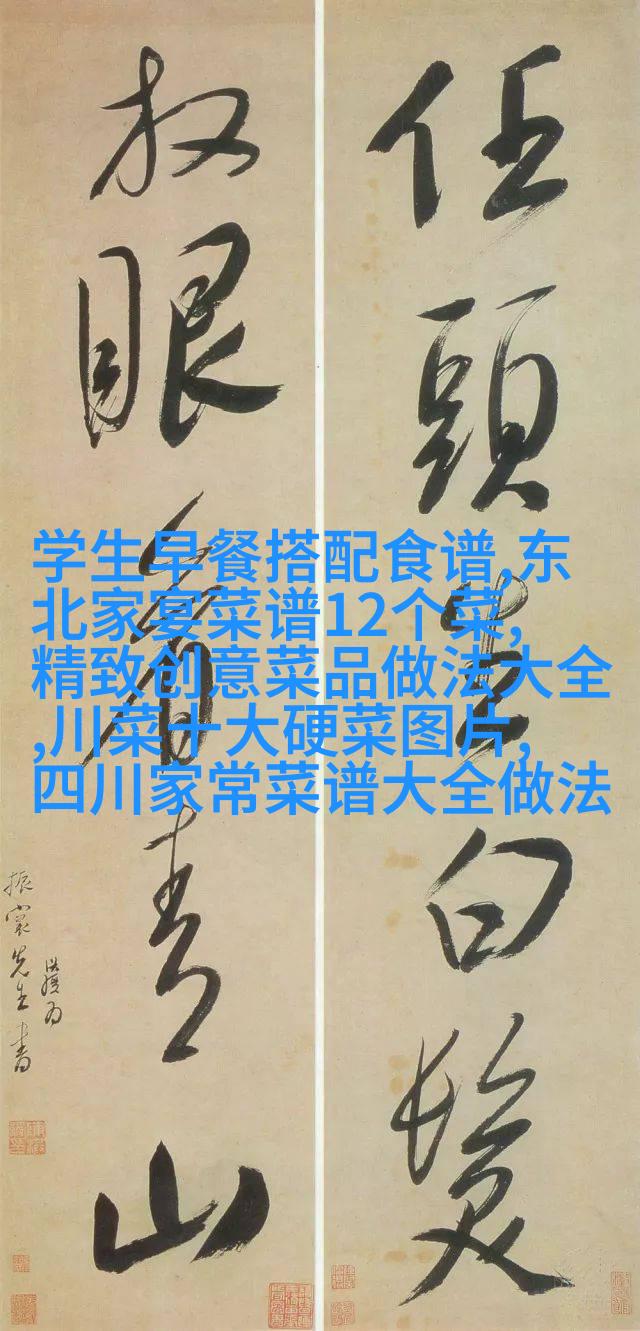 任頭生白髮
放眼看青山
先生書
学生早餐搭配食谱,东
北家宴菜谱12个菜,
精致创意菜品做法大全
,川菜十大硬菜图片,
四川家常菜谱大全做法